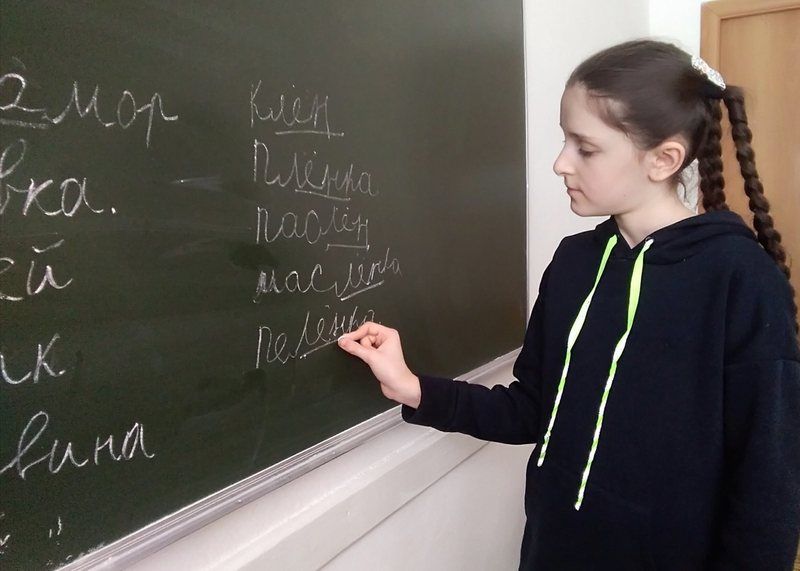 мор
вка.
ей
ик
вина
клён
плёнка
паслён
маслёнка
пелёнка